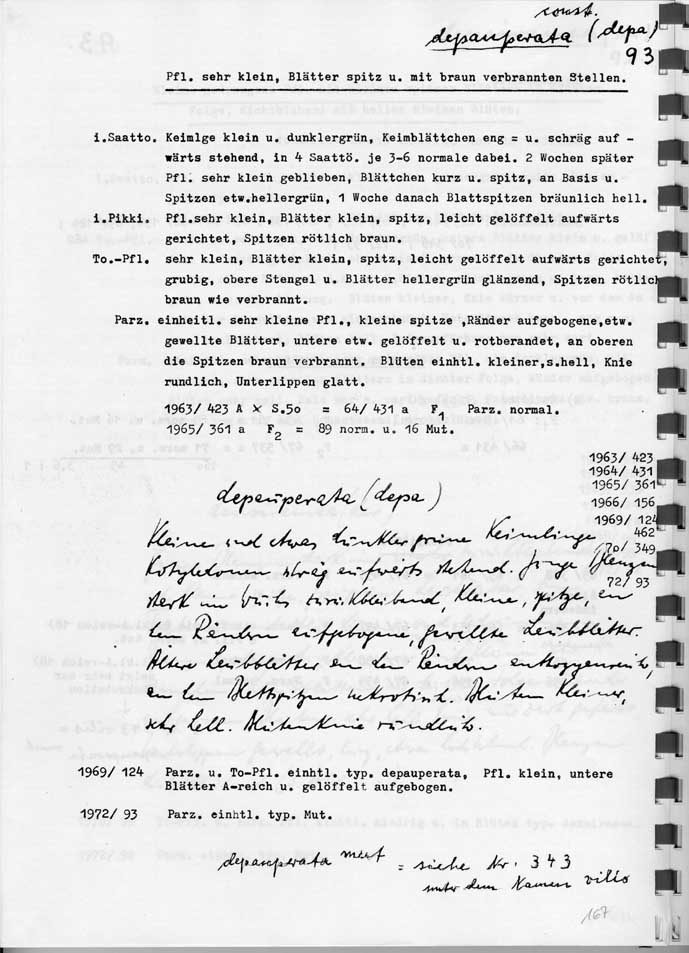 const.
depauperata (depa)
93
Pfl. sehr klein, Blätter spitz u. mit braun verbrannten Stellen.
i.Saatto. Keimlge klein u. dunklergrün, Keimblättchen eng = u. schräg auf -
wärts stehend, in 4 Saattö. je 3-6 normale dabei. 2 Wochen später
Pfl. sehr klein geblieben, Blättchen kurz u. spitz, an Basis u.
Spitzen etw.hellergrün, 1 Woche danach Blattspitzen bräunlich hell.
i.Pikki. Pfl.sehr klein, Blätter klein, spitz, leicht gelöffelt aufwärts
gerichtet, Spitzen rötlich braun.
To.-Pfl. sehr klein, Blätter klein, spitz, leicht gelöffelt aufwärts gerichtet,
grubig, obere Stengel u. Blätter hellergrün glänzend, Spitzen rötlich
braun wie verbrannt.
Parz. einheitl. sehr kleine Pfl., kleine spitze ,Ränder aufgebogene,etw.
gewellte Blätter, untere etw. gelöffelt u. rotberandet, an oberen
die Spitzen braun verbrannt. Blüten einhtl. kleiner,s.hell, Knie
rundlich, Unterlippen glatt.
1963/ 423 A × S.5o = 64/ 431 a F1 Parz. normal.
1965/ 361 a F2 = 89 norm. u. 16 Mut.
1963/ 423
1964/ 431
1965/ 361
1966/ 156
1969/ 124
462
70/ 349
72/ 93
depauperata (depa)
Kleine und etwas dunkler grüne Keimlinge
Kotyledonen schräg aufwärts stehend. Junge Pflanzen
stark im Wuchs zurückbleibend, kleine, spitze, an
den Rändern aufgebogene, gewellte Laubblätter.
Ältere Laubblätter an den Rändern anthozyanreich,
an den Blattspitzen nekrotisch. Blüten kleiner,
sehr hell. Blütenknie rundlich.
1969/ 124 Parz. u. To-Pfl. einhtl. typ. depauperata, Pfl. klein, untere
Blätter A-reich u. gelöffelt aufgebogen.
1972/ 93 Parz. einhtl. typ. Mut.
depauperata mut = siehe Nr. 343
unter dem Namen villo
167